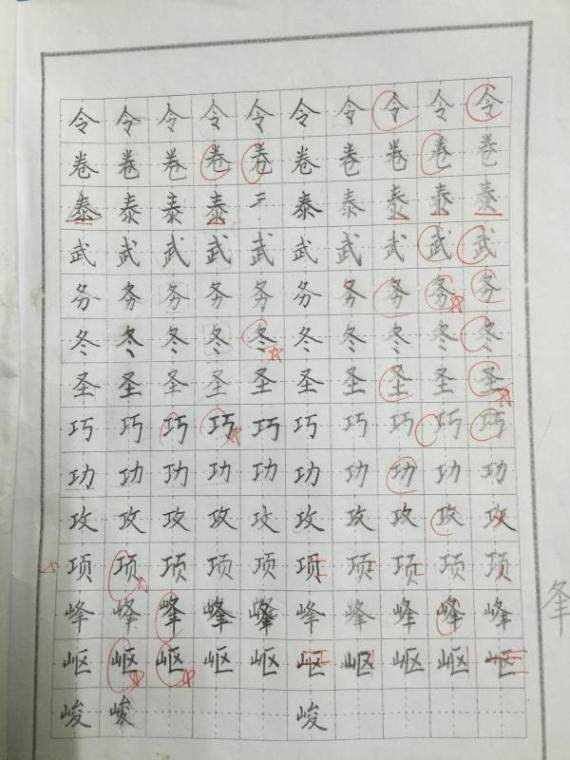 令令令令令令令令令令
卷卷卷卷卷卷卷卷卷卷
泰泰泰泰三泰泰泰泰泰
武武武武武武武武武武
务务务务务务务务务务
冬冬冬冬冬冬冬冬冬冬
圣圣圣圣圣圣圣圣圣圣
巧巧巧巧巧巧巧巧巧巧
功功功功功功功功功功
攻攻攻攻攻攻攻攻攻攻
项项项项项项项项项项
峰峰峰峰峰峰峰峰峰峰
岖岖岖岖岖岖岖岖岖岖
峻峻峻
夆